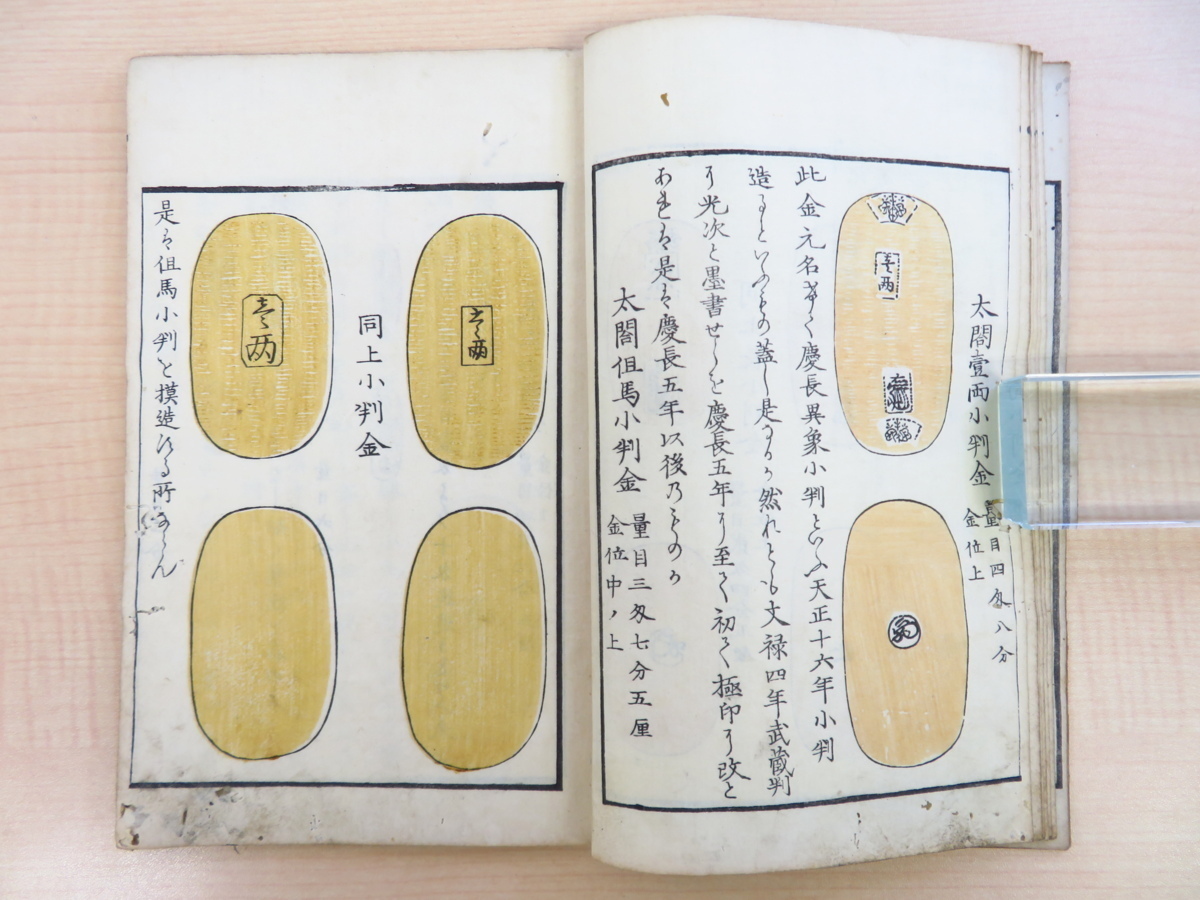 太閤壹両小判金
量目四匁八分
金位上
壹両
此金元名なく慶長異象小判といふ天正十六年小判
造るといふもの蓋し是なるか然れとも文禄四年武蔵判
に光次と墨書せしを慶長五年に至て初て極印に改と
あれは是は慶長五年以後乃ものか
太閤但馬小判金
量目三匁七分五厘
金位中ノ上
壹両
同上小判金
壹両
是は但馬小判を摸造する所ならん